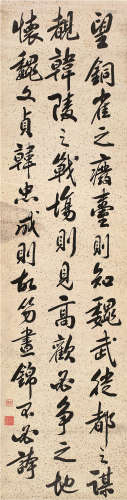 望銅雀之廢臺則知魏武徙都之謀
觀韓陵之戰場則見高歡必爭之地
懷魏文貞韓忠成則故笏晝錦不必誇